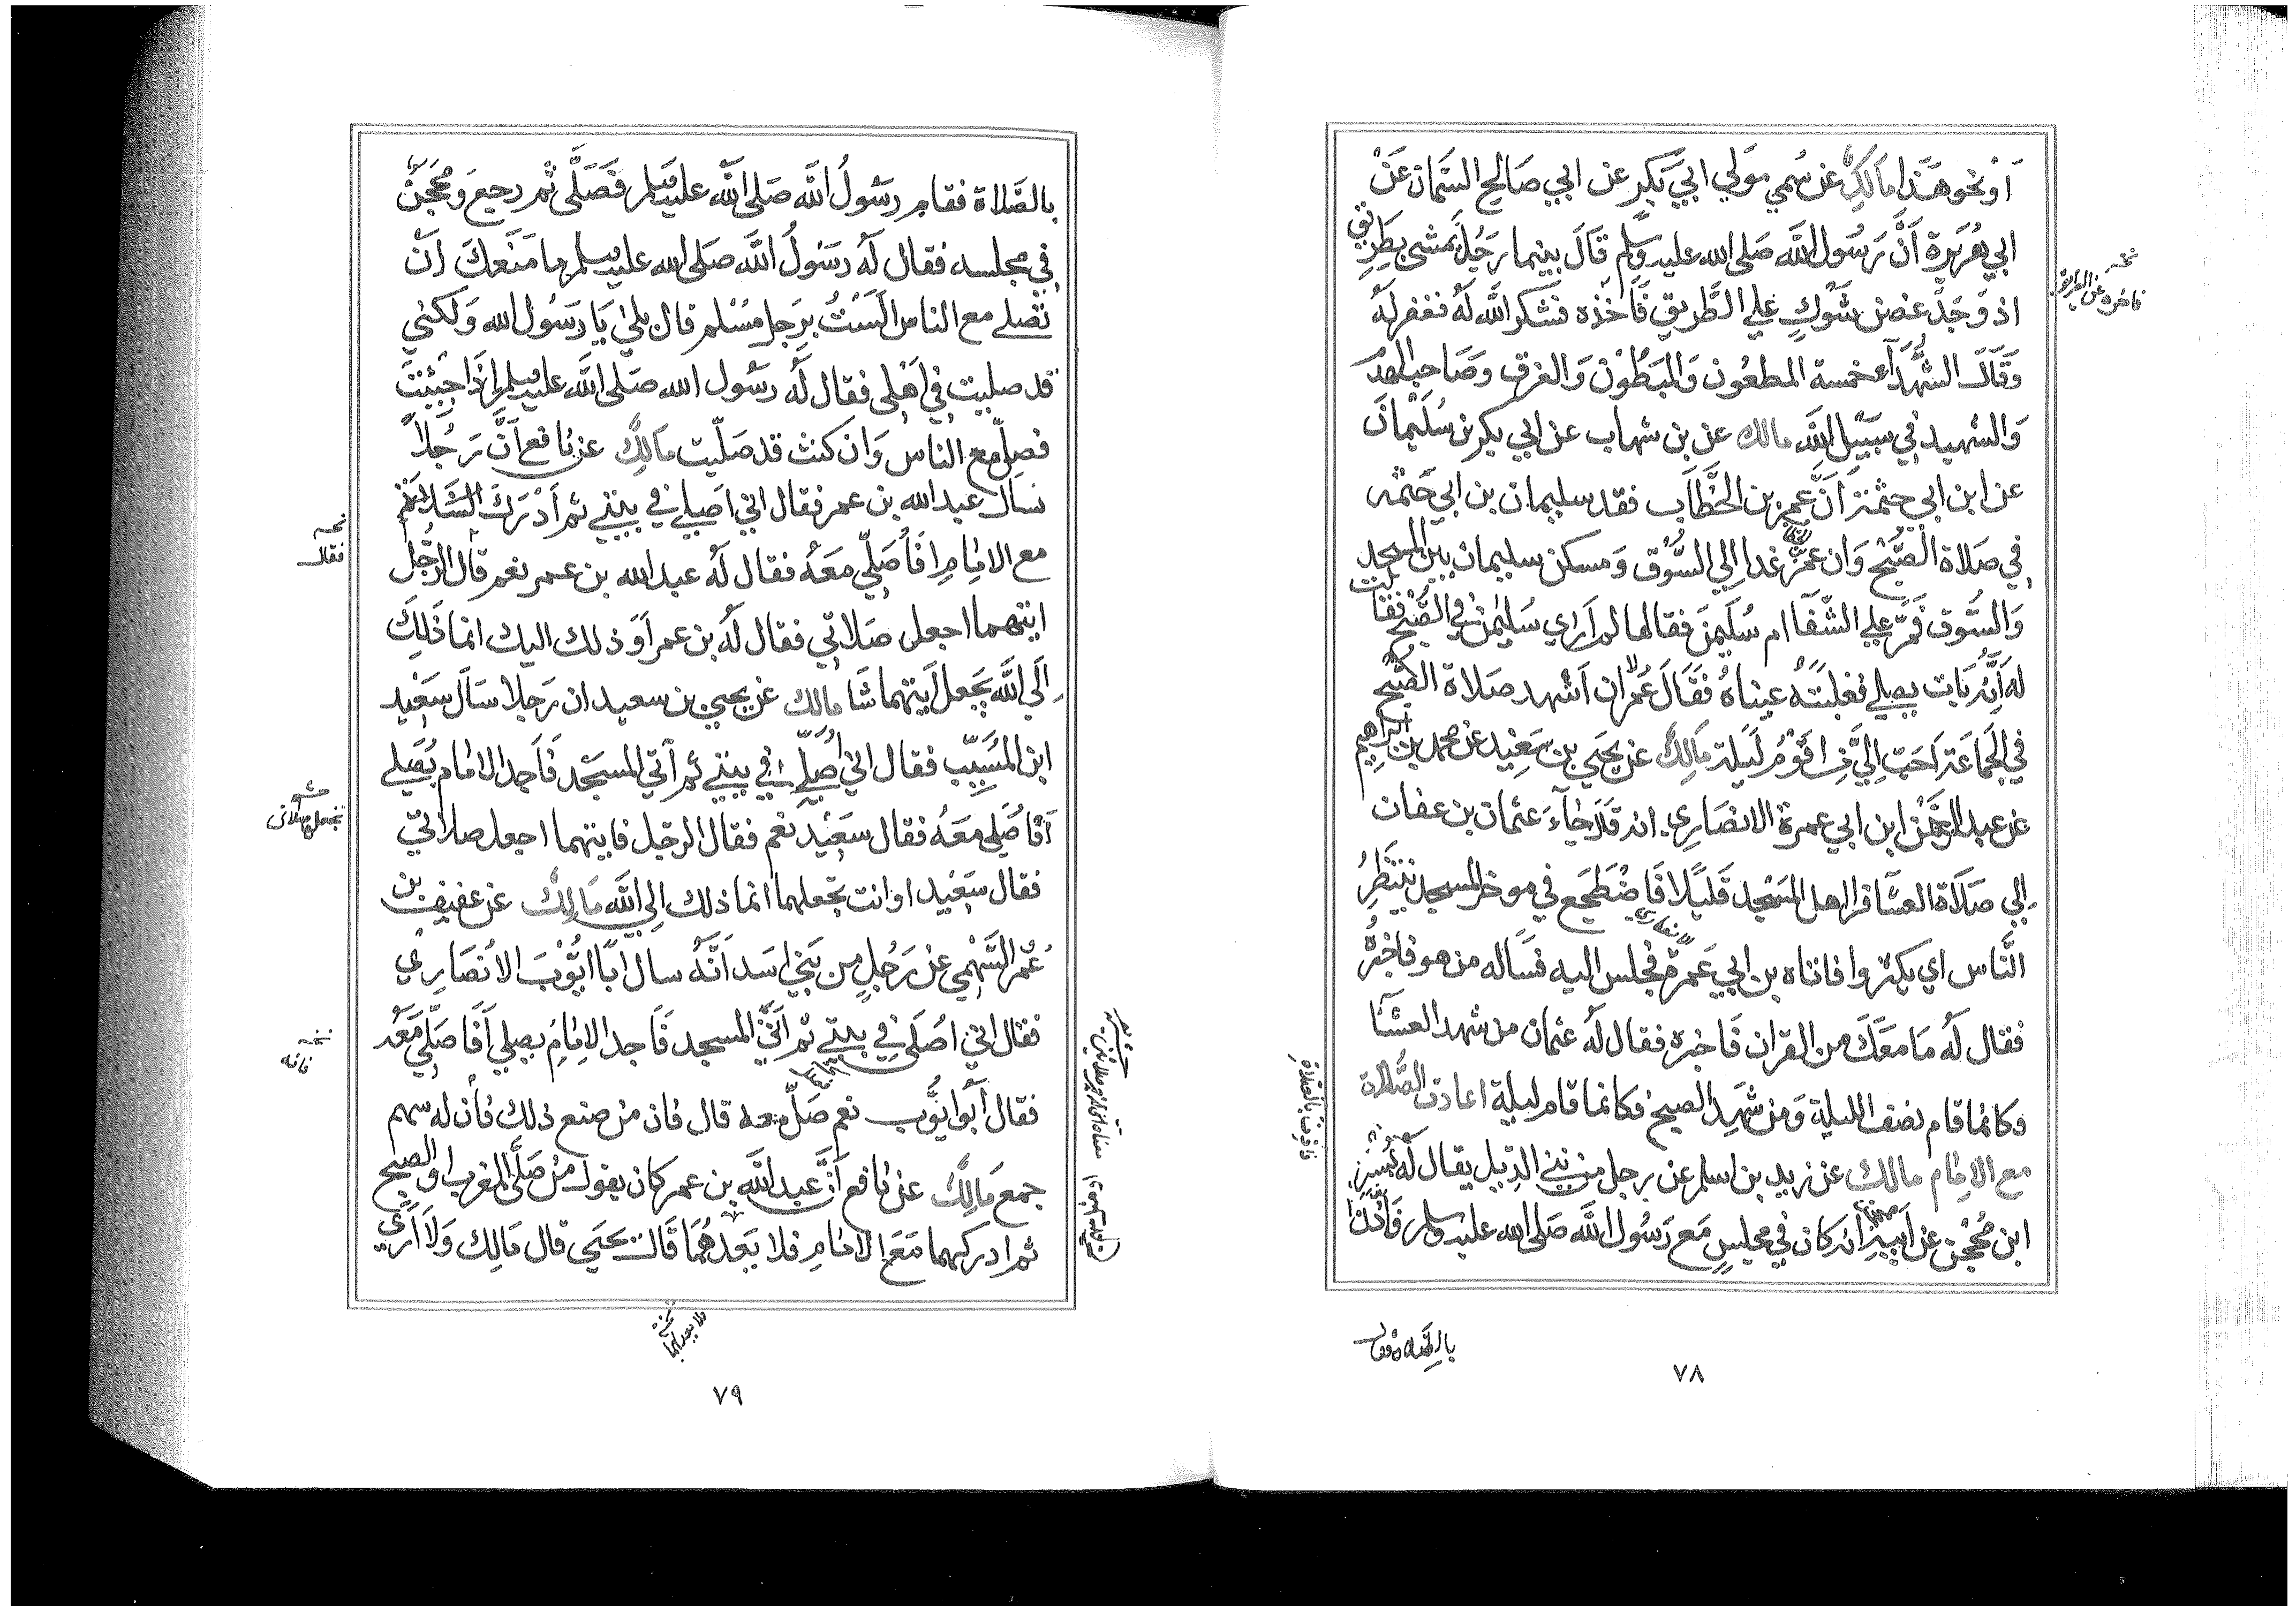 اَوْ نحو هَذَا مَالِكٌ عَن سُمي مَولي ابي بَكرِ عن ابي صَالح السَّمان عَنْ
ابي هُرَيرة اَنَّ رَسُول اللَّه صَلى الله عليه وسلم قَالَ بينما رَجُلٌ يَمشى بطَرِيْق
اذ وَجَدَ غصن شَوْكٍ عَلي الطَّريق فَاَخَّذه فشكر اللَّه لهُ فغفر لهُ
وَقَالَ الشُّهَدَآء خمسة المطعُون وَالمبطُوْن وَالغرق وصَاحب الهدم
وَالشهيد في سَبِيْل اللَّه مالك عن بن شهاب عن ابي بكر بن سُلَيْمَان
عن ابن ابي حثمة اَنَّ عمر بن الخَطَّاب فقد سليمان بن ابي حَثْمة
في صَلاة الصُّبْح وَان عمرَ غدا اِلي السُّوْق وَمسكن سليمان بين المسجد
وَالسُّوق فمَرَّ علي الشّفَآ ام سُلَيمن فقال لها لم اَرَ سُلَيمٰن في الصُّبْح فقالت
له اَنَّهُ بَات يصلي فغلبَتْه عيناهُ فقَالَ عُمَرُ لان اَشهد صَلاة الصُّبْح
في الجمَاعَة اَحَبّ اِليَّ من اَن اَقُوْمُ لَيلة مَالِكٌ عن يحَيي بن سَعِيْد عن محمد بن ابراهيم
عن عبد الرَّحمٰن ابن ابي عمرة الانصَارِي انه قَال جَآءَ عثمان بن عفان
اِلي صَلَاة العشآ فرا اهل المَسْجد قَليْلا فَاضْطجَع في موخر المسجد يَنتَظِرُ
النَّاس اي يكثروا فاتاه بن ابي عَمرةَ فجلس اليه فسَاَله من هو فاخبَرَهُ
فقال لَه مَا مَعَكَ من القران فَاخبره فقال لَهُ عثمان من شهد العشَآ
وكانما قام نصف الليلة وَمن شَهِدَ الصبح فكانما قام ليلة اعادة الصَّلاة
مع الامَام مالك عن زيد بن اسلم عن رجل من بني الدِّيل يقال لَهُ بُسْرُ
ابن مُحْجَن عن اَبيه انه كان في مجلسٍ مَع رَسُول اللَّه صَلى الله عليه وسلم فَاُذِّنَ
نسخه
فاخره عن الطريق
فاذن بالصّلاة
بالصَّلاة فقام
٧٨
بالصَّلاة فقام رسُولُ اللَّه صَلى اللَّه عليه وسلم فَصَلَّى ثم رجعَ ومُحْجَنٌ
في مجلسه فقال لَه رَسُولُ اللَّه صَلى الله عليه وسلم ما مَنَعكَ اَنْ
تصَلي مع الناس اَلَسْتُ برَجل مُسْلم قال بلٰي يَا رَسُول الله وَلكني
قد صليت في اَهْلى فقال لَه رسُول الله صَلى اللَّه عليه وسلم اِذَا جِئْتَ
فصلِّ مع الناس وَان كنت قد صَلّيت مَالِكٌ عن نافع اَنَّ رَجُلاً
سَال عبد الله بن عمر فقال اني اُصَلي في بيتي ثم اَدْرَكَ الصَّلاة
مع الامَامِ افَاُصَلّي مَعَهُ فقال لَهُ عبد الله بن عمر نعم قال الرَّجُل
ايتهما اجعل صَلاتي فقال لَهُ بن عمر اَوَ ذلك اليك انما ذَلِكَ
اِلَي اللَّه يَجعل اَيتهما شَا مالك عن يحيي بن سعيد ان رَجلا سَاَل سَعِيْد
ابن المُسَيّب فقال اني اُصَلّي في بيتي ثم آتي المسجد فَاَجد الامام يُصَلي
اَفَاُصَلي مَعَهُ فقال سَعِيْد نعم فقال الرجل فايتهما اجعل صَلاتي
فقال سَعِيْد اوانت تجعلهما انما ذلك اِلي اللَّه مَالِكٌ عن عفيف بن
عُمَر السَّهْمي عن رَجُلٍ من بَني اسَد اَنَّهُ سال اَبا ايُّوْبَ الانصَاري
فقال اني اُصَلى في بيتي ثم اَتي المسجد فَاجد الامَامِ يصلي اَفَاصَلّي مَعَه
فقال اَبُوا يُّوب نعم صَلّ معه قال فان من صنع ذلك فان له سهم
جمع مَالِكٌ عن نافع اَنَّ عبد اللَّه بن عمر كان يقول من صَلَّى المغرب او الصبح
ثم ادركهما مَعَ الامَامِ فلا يَعد هُمَا قَالَ يحَيي قال مَالك وَلا اَرَي
نسخه
فقال
تجعل صلاتى
نسخه
فانه
ولا يعد لهما
٧٩